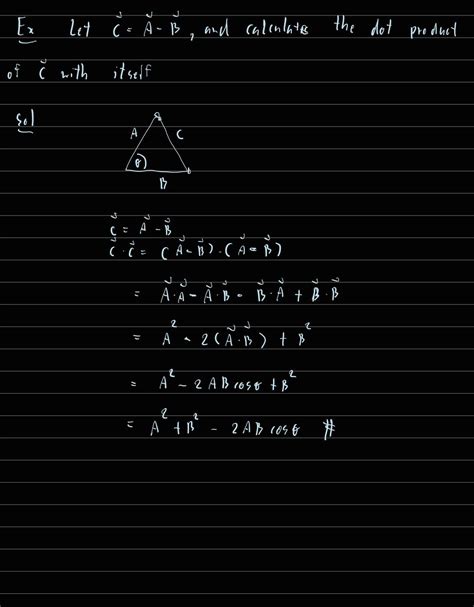 Ex Let C⃗ = A⃗ - B⃗, and calculates the dot product
of C⃗ with itself
Sol
A C
θ
B
C⃗ = A⃗ - B⃗
C⃗ · C⃗ = (A⃗ - B⃗) · (A⃗ - B⃗)
= A⃗ · A⃗ - A⃗ · B⃗ - B⃗ · A⃗ + B⃗ · B⃗
= A² - 2(A⃗ · B⃗) + B²
= A² - 2AB cosθ + B²
= A² + B² - 2AB cosθ #